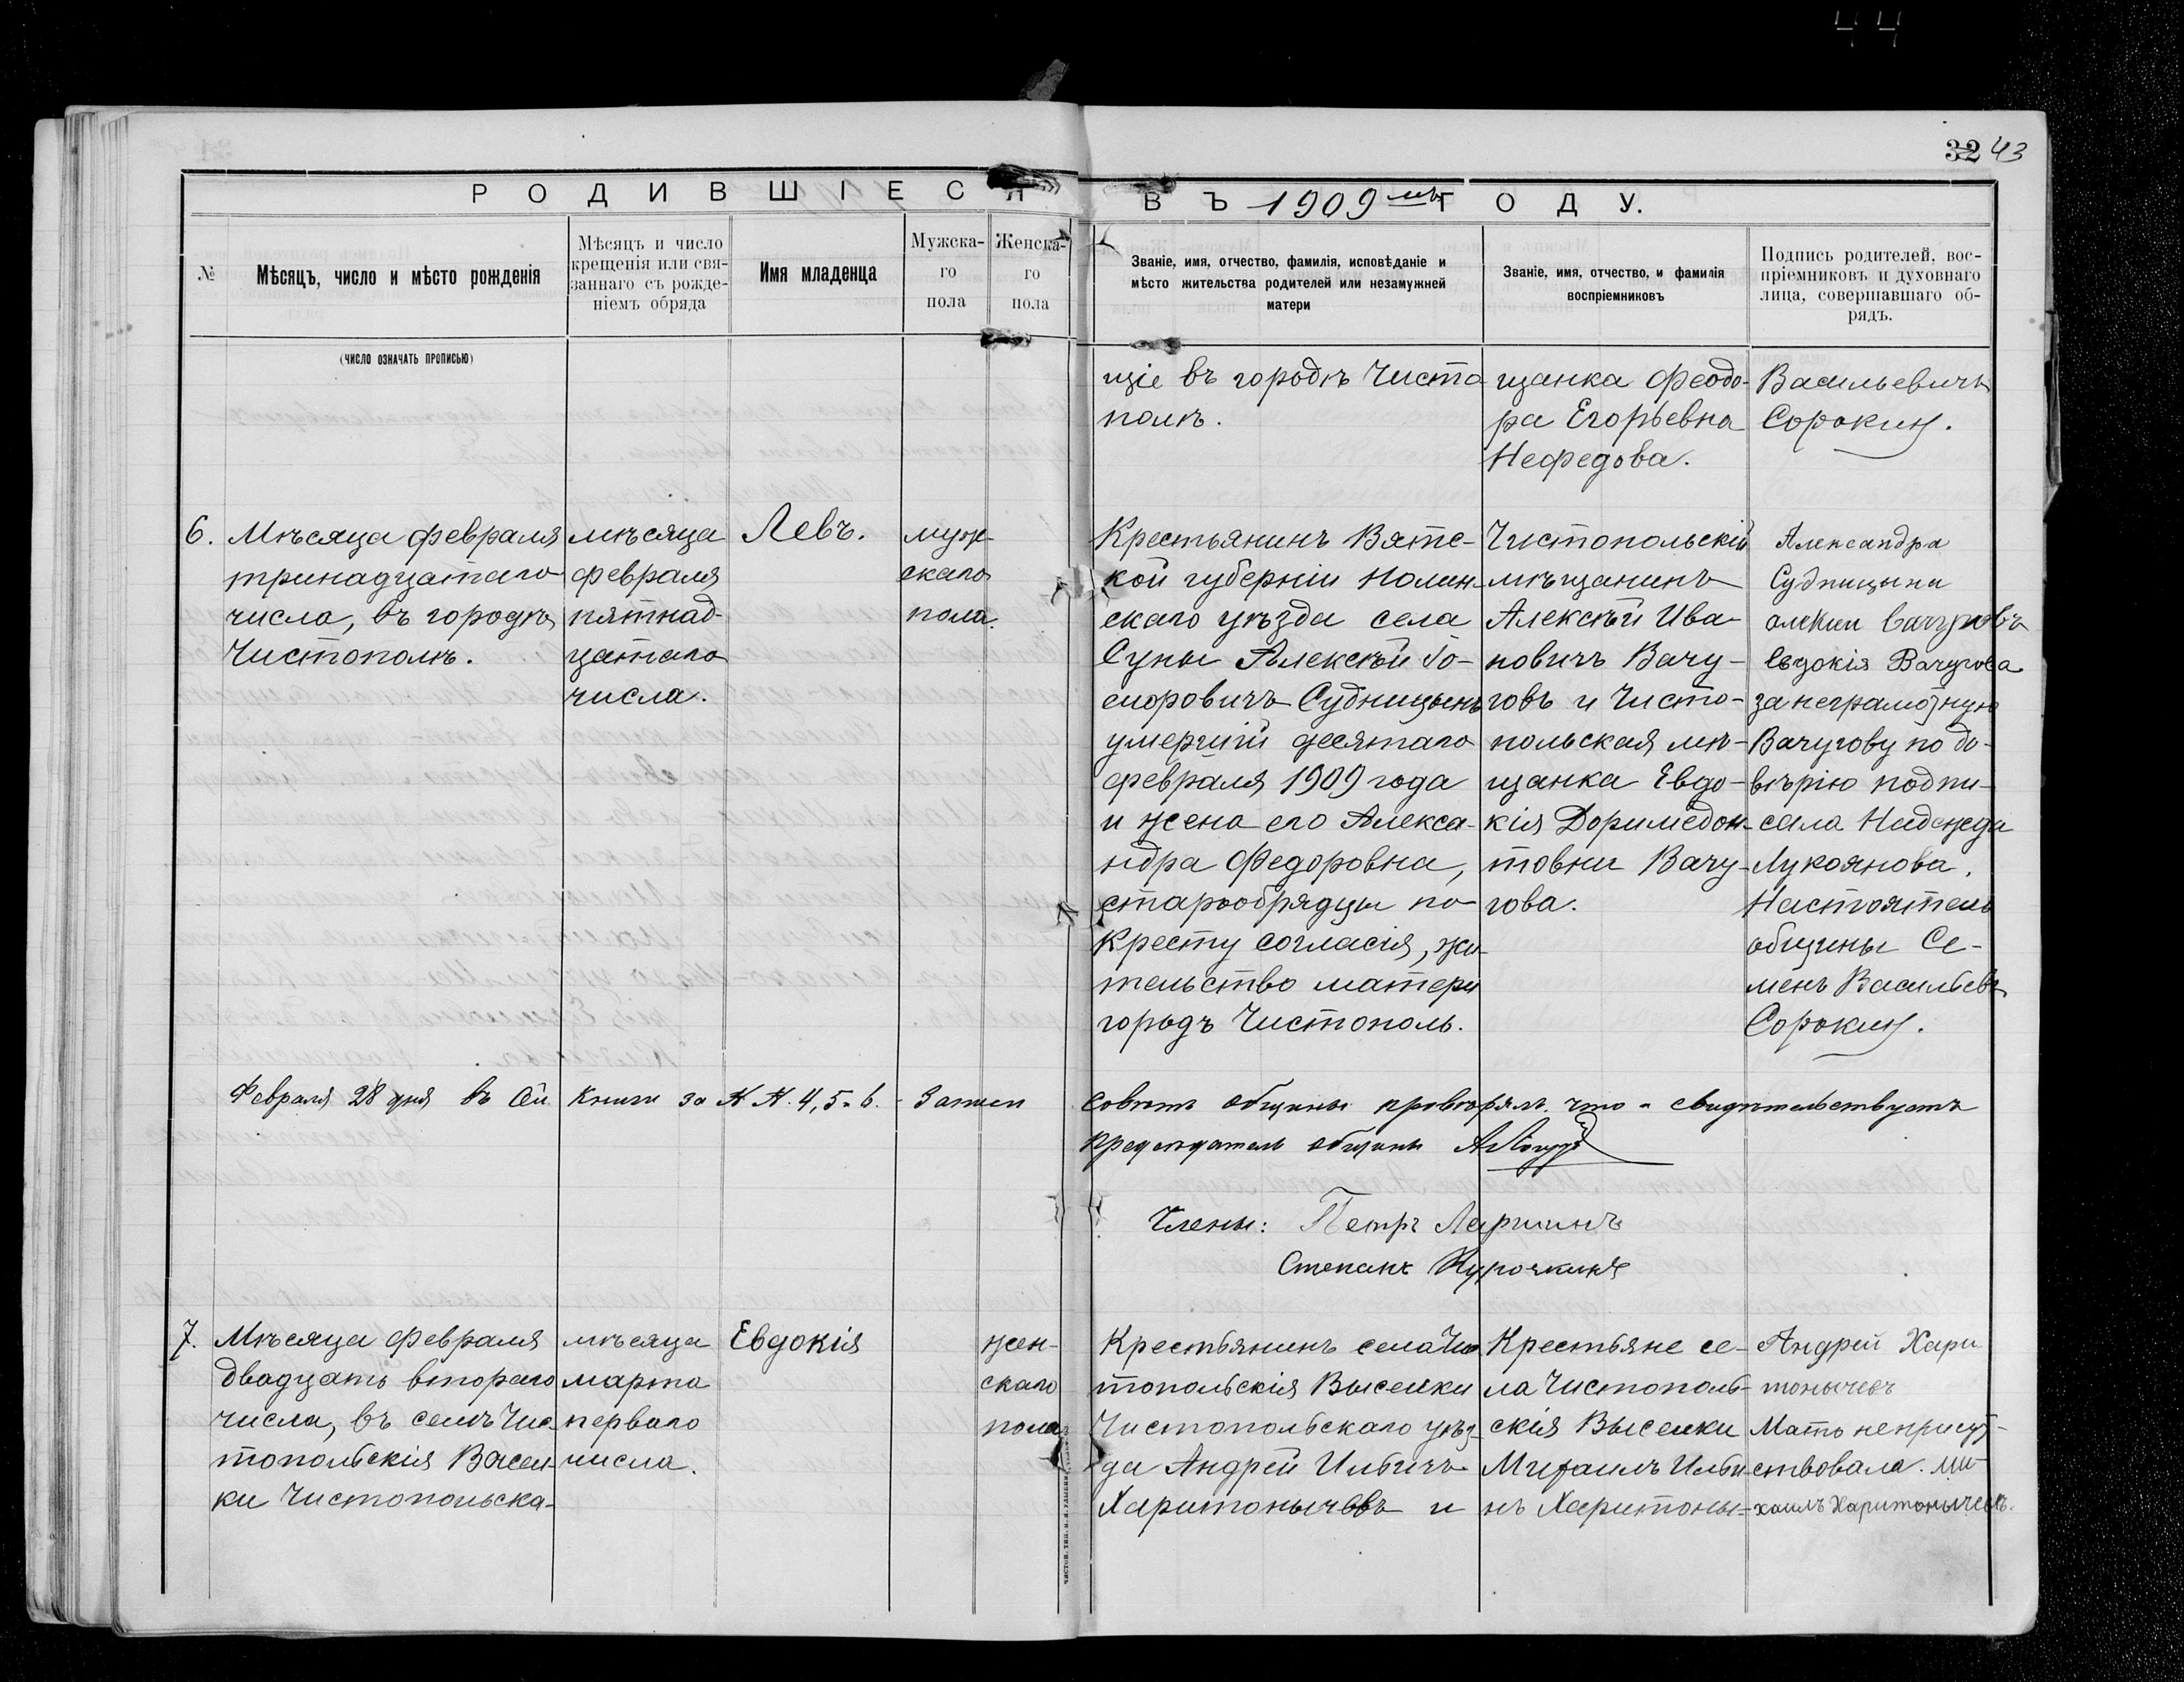 44
32 43
РОДИВШІЕСЯ ВЪ 1909мъ ГОДУ.
№
Мѣсяцъ, число и мѣсто рожденія
Мѣсяцъ и число
крещенія или свя-
заннаго съ рожде-
ніемъ обряда
Имя младенца
Мужска-
го
пола
Женска-
го
пола
Званіе, имя, отчество, фамилія, исповѣданіе и
мѣсто жительства родителей или незамужней
матери
Званіе, имя, отчество, и фамилія
воспріемниковъ
Подпись родителей, вос-
пріемниковъ и духовнаго
лица, совершавшаго об-
рядъ.
(число означать прописью)
щіе въ городѣ Чисто
полѣ.
щанка Феодо-
ра Егорьевна
Нефедова.
Васильевичъ
Сорокин.
6.
Мѣсяца февраля
тринадцатаго
числа, въ городѣ
Чистополѣ.
мѣсяца
февраля
пятнад-
цатаго
числа.
Левъ.
муж-
скаго
пола.
Крестьянинъ Вятс-
кой губерніи Нолин-
скаго уѣзда села
Суны Алексѣй Іо-
сифовичъ Судницынъ
умершій десятаго
февраля 1909 года
и жена его Алекса-
ндра Федоровна,
старообрядцы по
Кресту согласія, жи-
тельство матери
городъ Чистополь.
Чистопольскій
мѣщанинъ
Алексѣй Ива-
новичъ Вачу-
говъ и Чисто-
польская мѣ-
щанка Евдо-
кія Доримедон-
товна Вачу-
гова.
Александра
Судницына
алекси вачуговъ
Евдокія Вачугова
за неграмотную
Вачугову по до-
вѣрію подпи-
сала Надежда
Лукоянова.
Настоятель
общины Се-
менъ Васильевъ
Сорокин.
Февраля 28 дня въ сей книги за № №. 4, 5 и 6. - Записи советъ общины проверялъ. что и свидѣтельствуетъ
председатель общины
Члены: Петръ Ларшинъ
Степанъ Курочкинъ
7.
Мѣсяца февраля
двадцать второго
числа, въ селѣ Чис
топольскія Высел-
ки Чистопольска-
мѣсяца
марта
перваго
числа.
Евдокія
жен-
скаго
пола
Крестьянинъ села Чис
топольскія Выселки
Чистопольскаго уѣз-
да Андрей Ильичъ
Харитонычевъ и
Крестьяне се-
ла Чистополь-
скія Выселки
Михаилъ Ильи
нъ Харитоны-
Андрей Хари
тонычевъ
Мать неприсут-
ствовала. Ми
хаилъ Харитонычевъ.